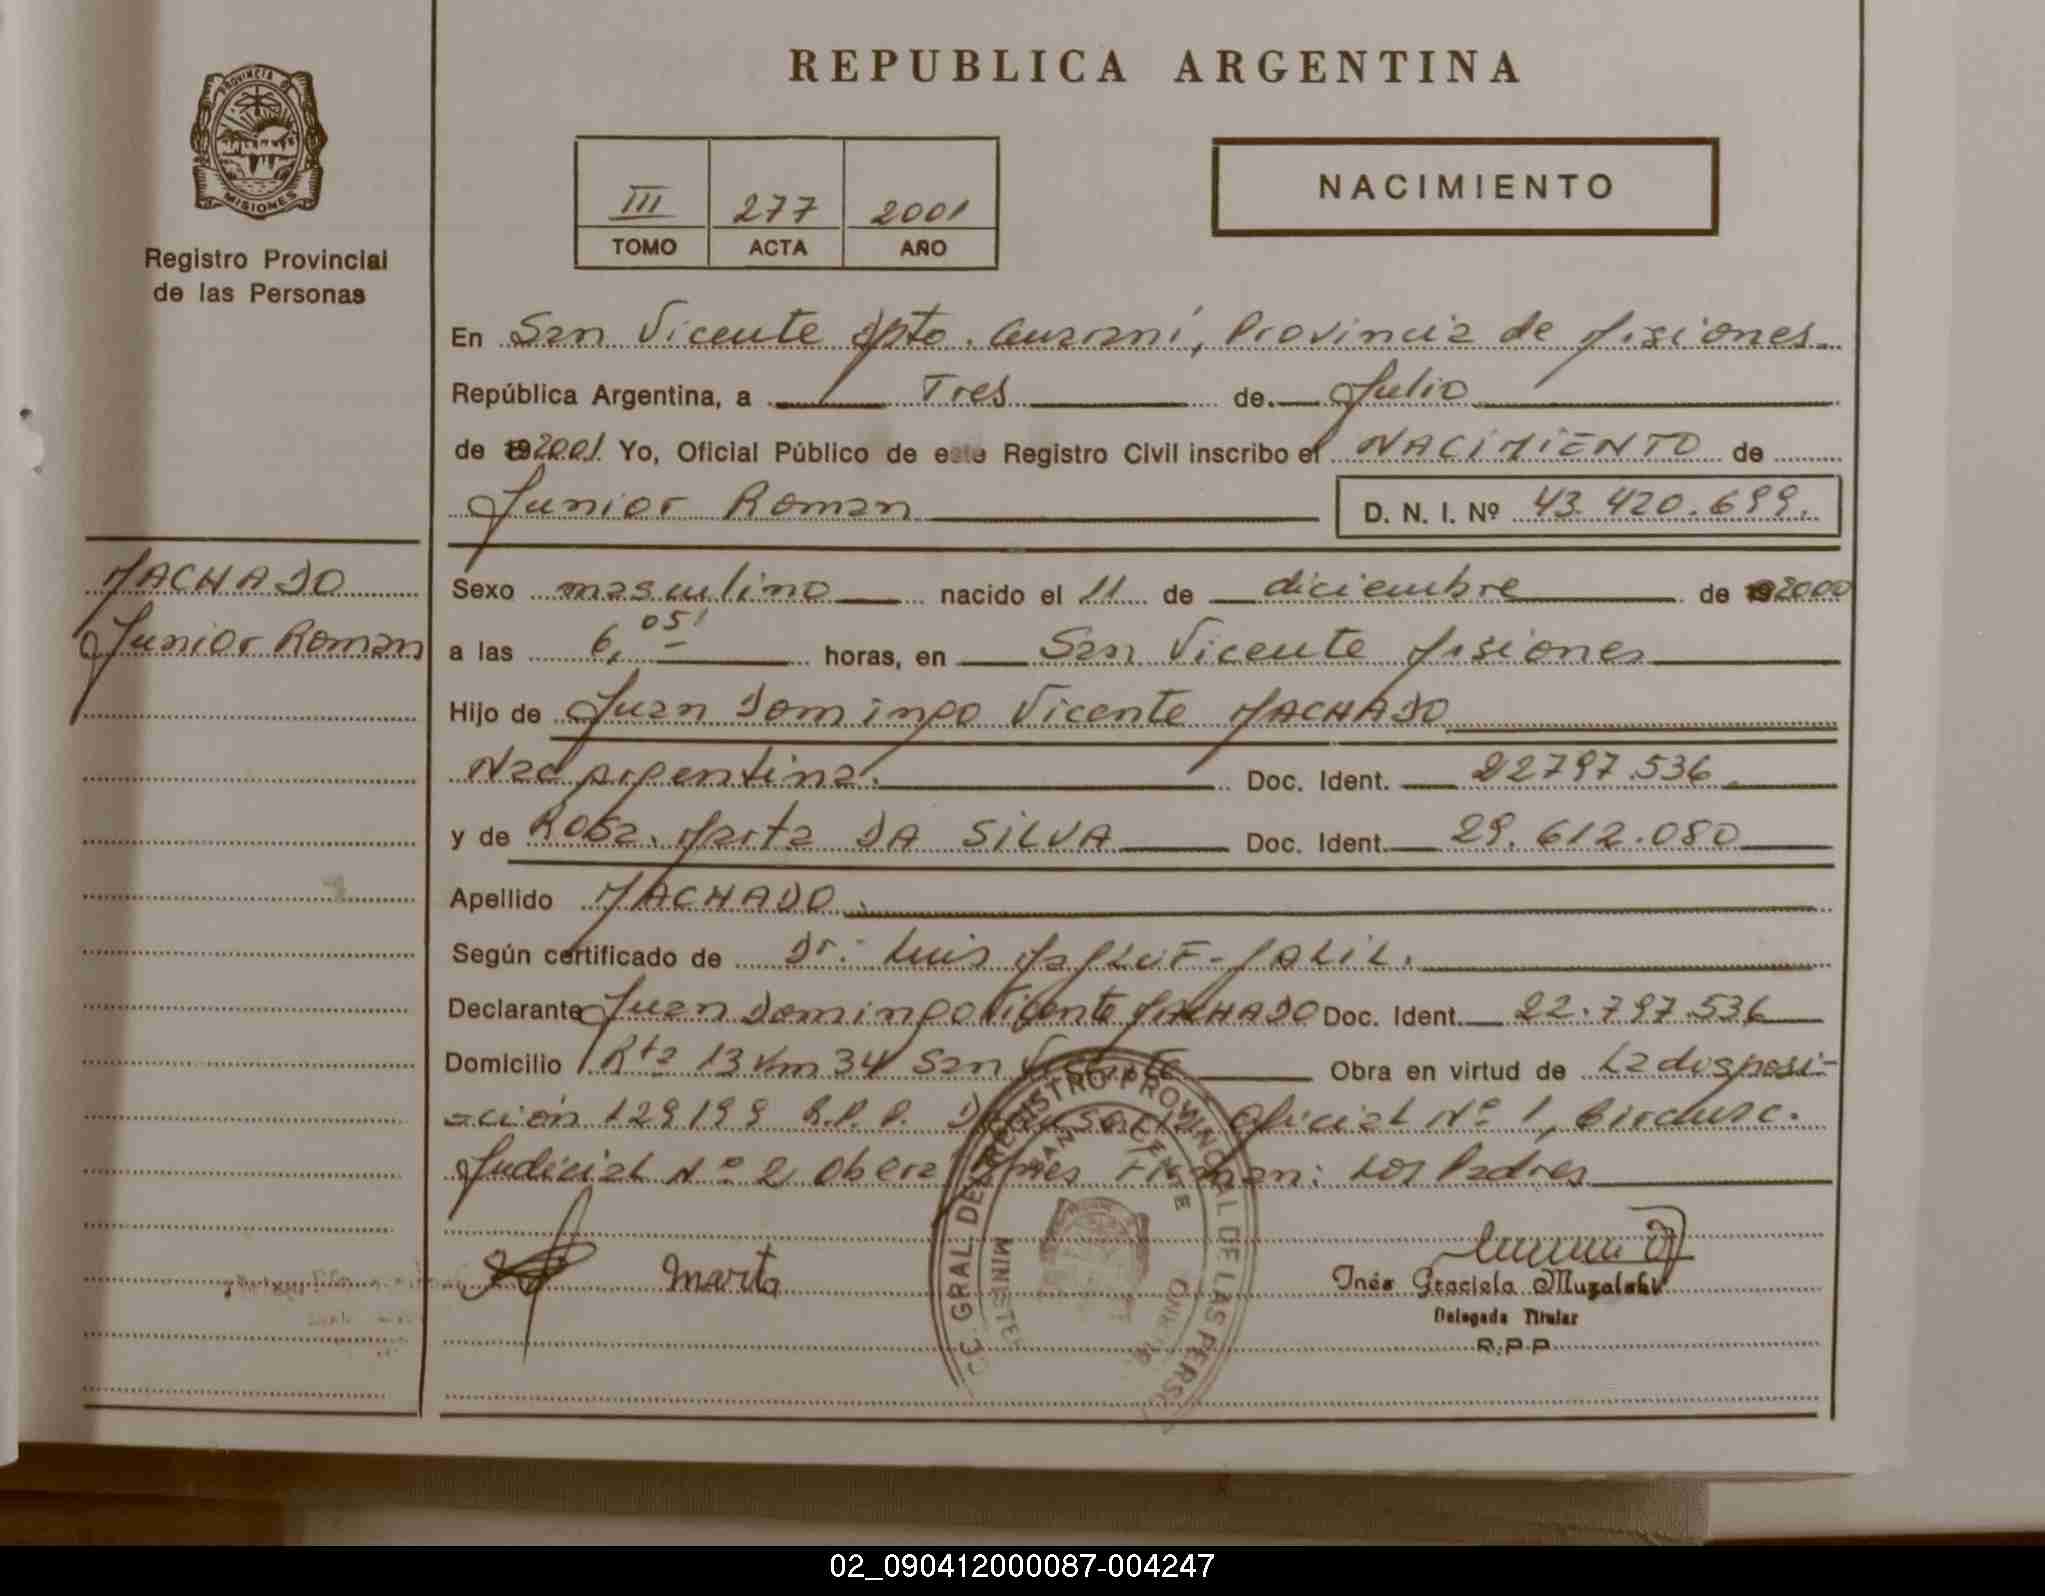 REPUBLICA ARGENTINA
PROVINCIA DE
MISIONES
Registro Provincial
de las Personas
III 277 2001
TOMO ACTA AÑO
NACIMIENTO
En San Vicente Dpto. Guaraní, Provincia de Misiones
República Argentina, a Tres de Julio
de 19 2001 Yo, Oficial Público de este Registro Civil inscribo el NACIMIENTO de
Junior Roman D. N. I. Nº 43.420.699.
MACHADO
Junior Roman
Sexo masculino nacido el 11 de diciembre de 19 2000
a las 6,05' horas, en San Vicente Misiones
Hijo de Juan Domingo Vicente MACHADO
Nac argentina. Doc. Ident. 22797.536.
y de Rosa. Marta DA SILVA Doc. Ident. 29.612.080
Apellido MACHADO.
Según certificado de Dr. Luis JALIL.
Declarante Juan Domingo Vicente MACHADO Doc. Ident. 22.797.536
Domicilio Rta 13 Km 34 San Vicente Obra en virtud de La disposi-
ción 129199 R.P.P. Oficial Nº 1, Circunsc.
Judicial Nº 2 Obera Firman: Los Padres
Marta
Inés Graciela Muzalski
Delegada Titular
R.P.P.
GRAL DEL REGISTRO PROVINCIAL DE LAS PERSO
SAN VICENTE
02_090412000087-004247